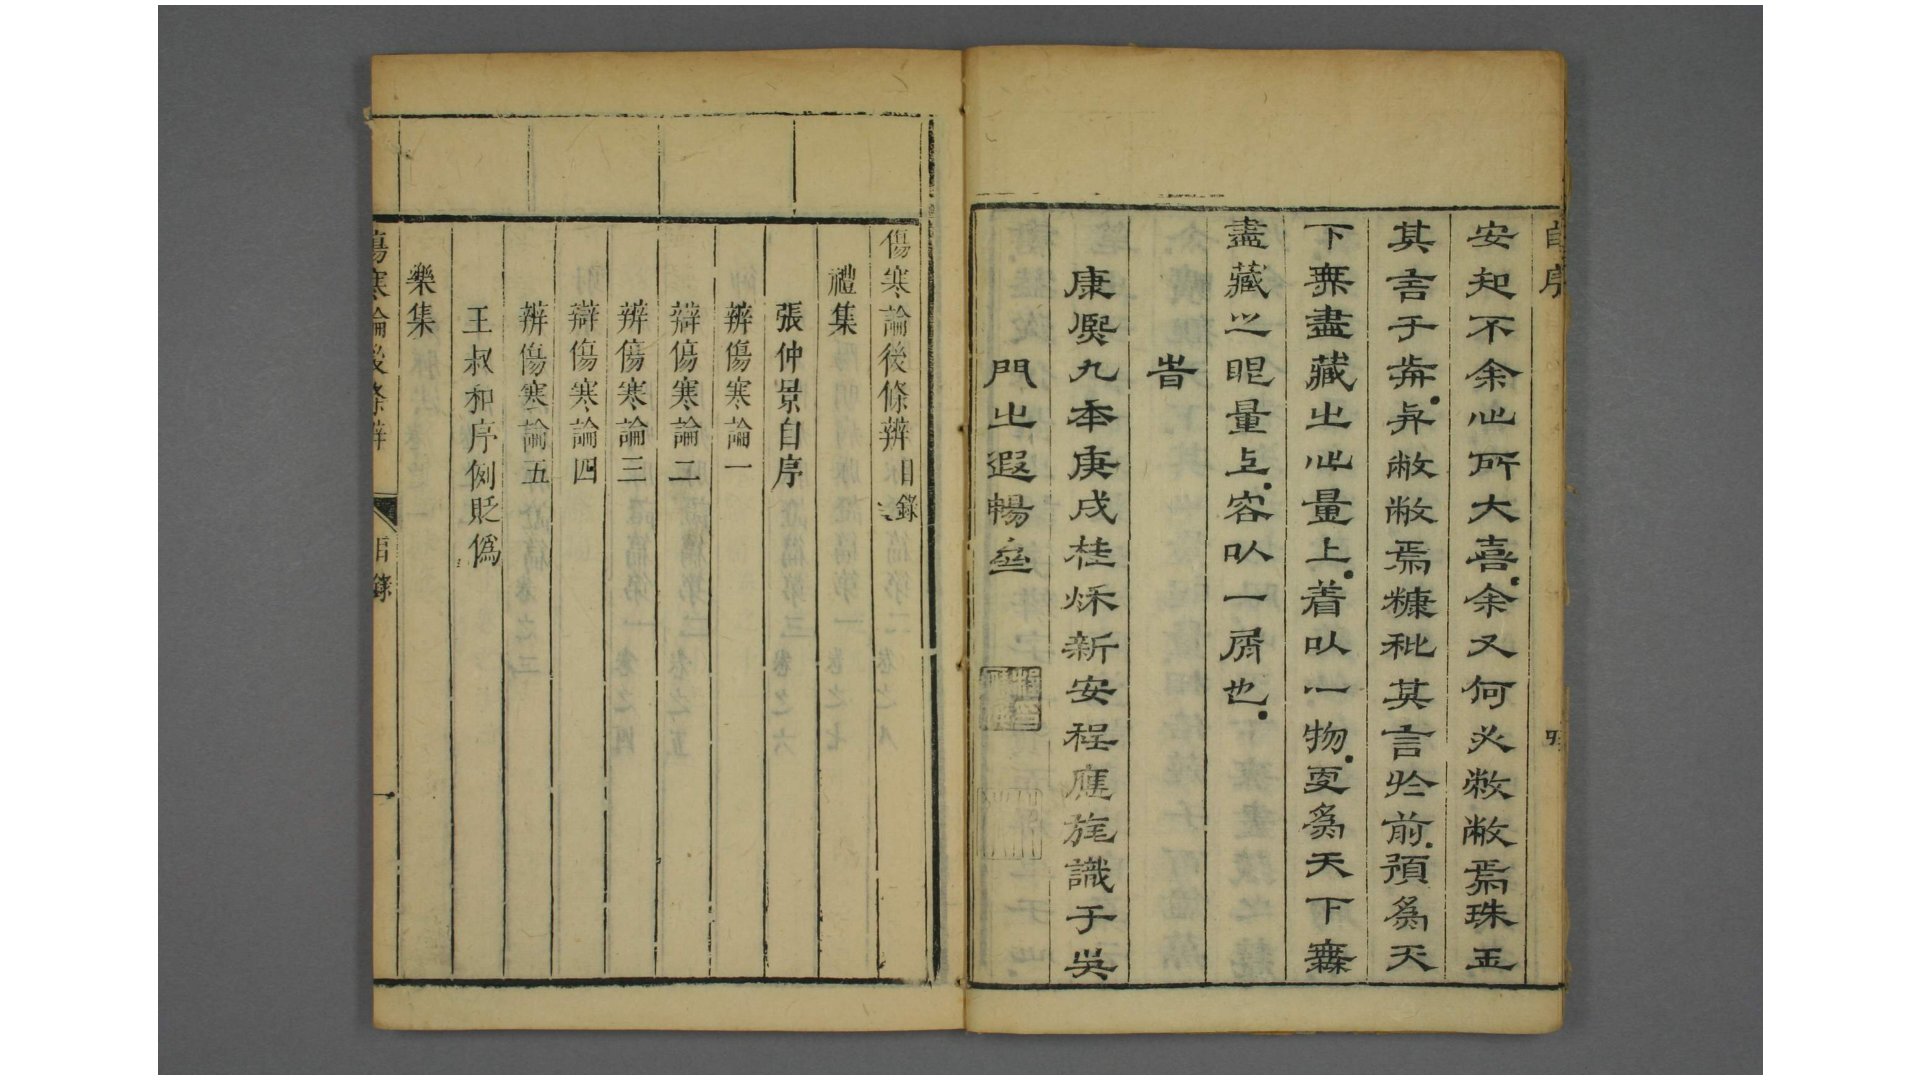 自序
安知不余心所大喜余又何必敝敝焉珠玉
其言于前與敝敝焉糠秕其言於前預爲天
下無盡藏之心量上着以一物更爲天下無
盡藏之眼量上容以一屑也
旹
康熙九年庚戌桂秌新安程應旄識于吳
門之遐暢㘴
傷寒論後條辨目錄
禮集
張仲景自序
辨傷寒論一
辯傷寒論二
辨傷寒論三
辯傷寒論四
辨傷寒論五
王叔和序例貶僞
樂集
傷寒論後條辨
目錄
一